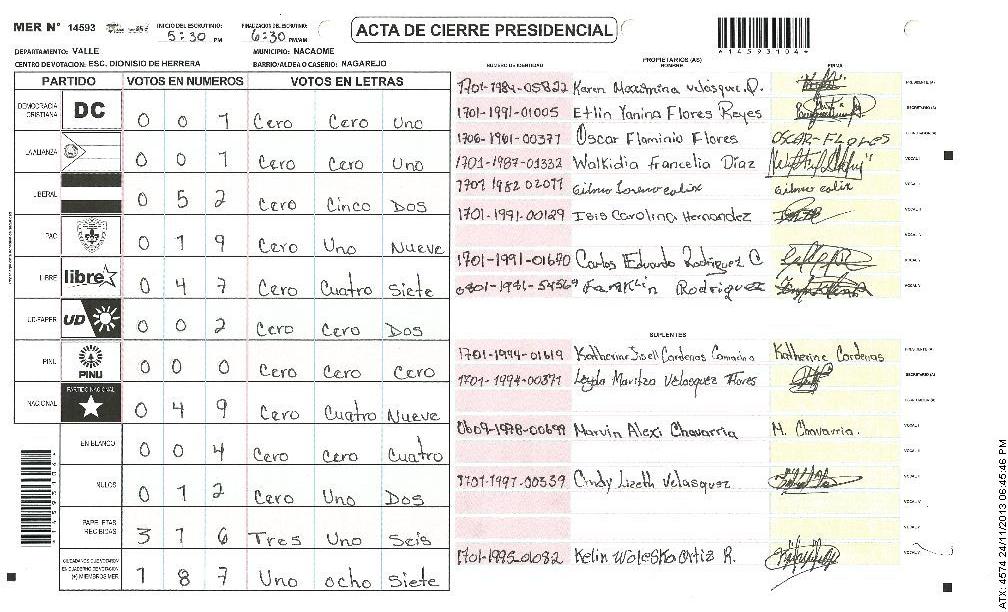 MER N° 14593 INICIO DEL ESCRUTINIO: 5:30 PM FINALIZACION DEL ESCRUTINIO: 6:30 PM/AM
ACTA DE CIERRE PRESIDENCIAL
*14593104*
DEPARTAMENTO: VALLE MUNICIPIO: NACAOME
CENTRO DE VOTACION: ESC. DIONISIO DE HERRERA BARRIO/ALDEA O CASERIO: NAGAREJO
PARTIDO VOTOS EN NUMEROS VOTOS EN LETRAS
DEMOCRACIA CRISTIANA DC 0 0 1 Cero Cero Uno
LA ALIANZA 0 0 1 Cero Cero Uno
LIBERAL 0 5 2 Cero Cinco Dos
PAC 0 1 9 Cero Uno Nueve
LIBRE libre 0 4 7 Cero Cuatro Siete
UD-FAPER UD 0 0 2 Cero Cero Dos
PINU PINU 0 0 0 Cero Cero Cero
NACIONAL PARTIDO NACIONAL 0 4 9 Cero Cuatro Nueve
EN BLANCO 0 0 4 Cero Cero Cuatro
NULOS 0 1 2 Cero Uno Dos
PAPELETAS RECIBIDAS 3 1 6 Tres Uno Seis
(+) MIEMBROS MER 1 8 7 Uno ocho Siete
PROPIETARIOS (AS)
NUMERO DE IDENTIDAD NOMBRE FIRMA
1701-1984-05822 Karen Maximina Velásquez PRESIDENTE (A)
1701-1991-01005 Etlin Yanina Flores Reyes SECRETARIO (A)
1706-1961-00371 Óscar Flaminio Flores OSCAR-FLORES
1701-1987-01332 Walkidia Francelia Díaz VOCAL I
1701 1982 02077
1701-1991-00129 Isis Carolina Hernandez
1701-1991-01670 Carlos Eduardo Rodríguez C
Franklin Rodriguez
SUPLENTES
1701-1994-01619 Katherine Cardenas PRESIDENTE (A)
1701-1994-00371 Leyda Maritza Velasquez Flores SECRETARIO (A)
0609-1978-00699 Marvin Alexi Chavarria M. Chavarria.
1701-1997-00339 Cindy Lizeth Velasquez
1701-1995-01082 Kelin Woleska Ortiz R.
ATX: 4574 24/11/2013 06:45:46 PM